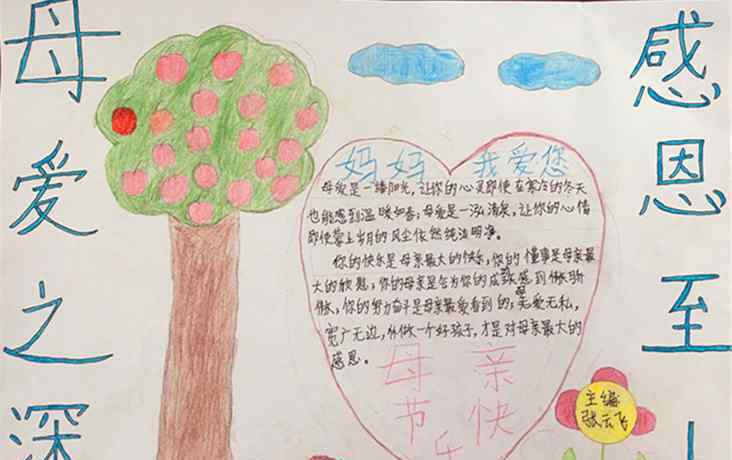 母爱之深
感恩至
妈妈 我爱您
母爱是一缕阳光,让你的心灵即便在寒冷的冬天
也能感到温暖如春;母爱是一泓清泉,让你的心情
即使蒙上岁月的风尘依然纯洁明净。
你的快乐是母亲最大的快乐,你的懂事是母亲最
大的欣慰,你的母亲是会为你的成感到
你的努力奋子是母亲最爱看到的,无爱无私,
宽广无边,做一个好孩子,才是对母亲最大的
感恩。
母亲
节快
乐
主编
张云飞